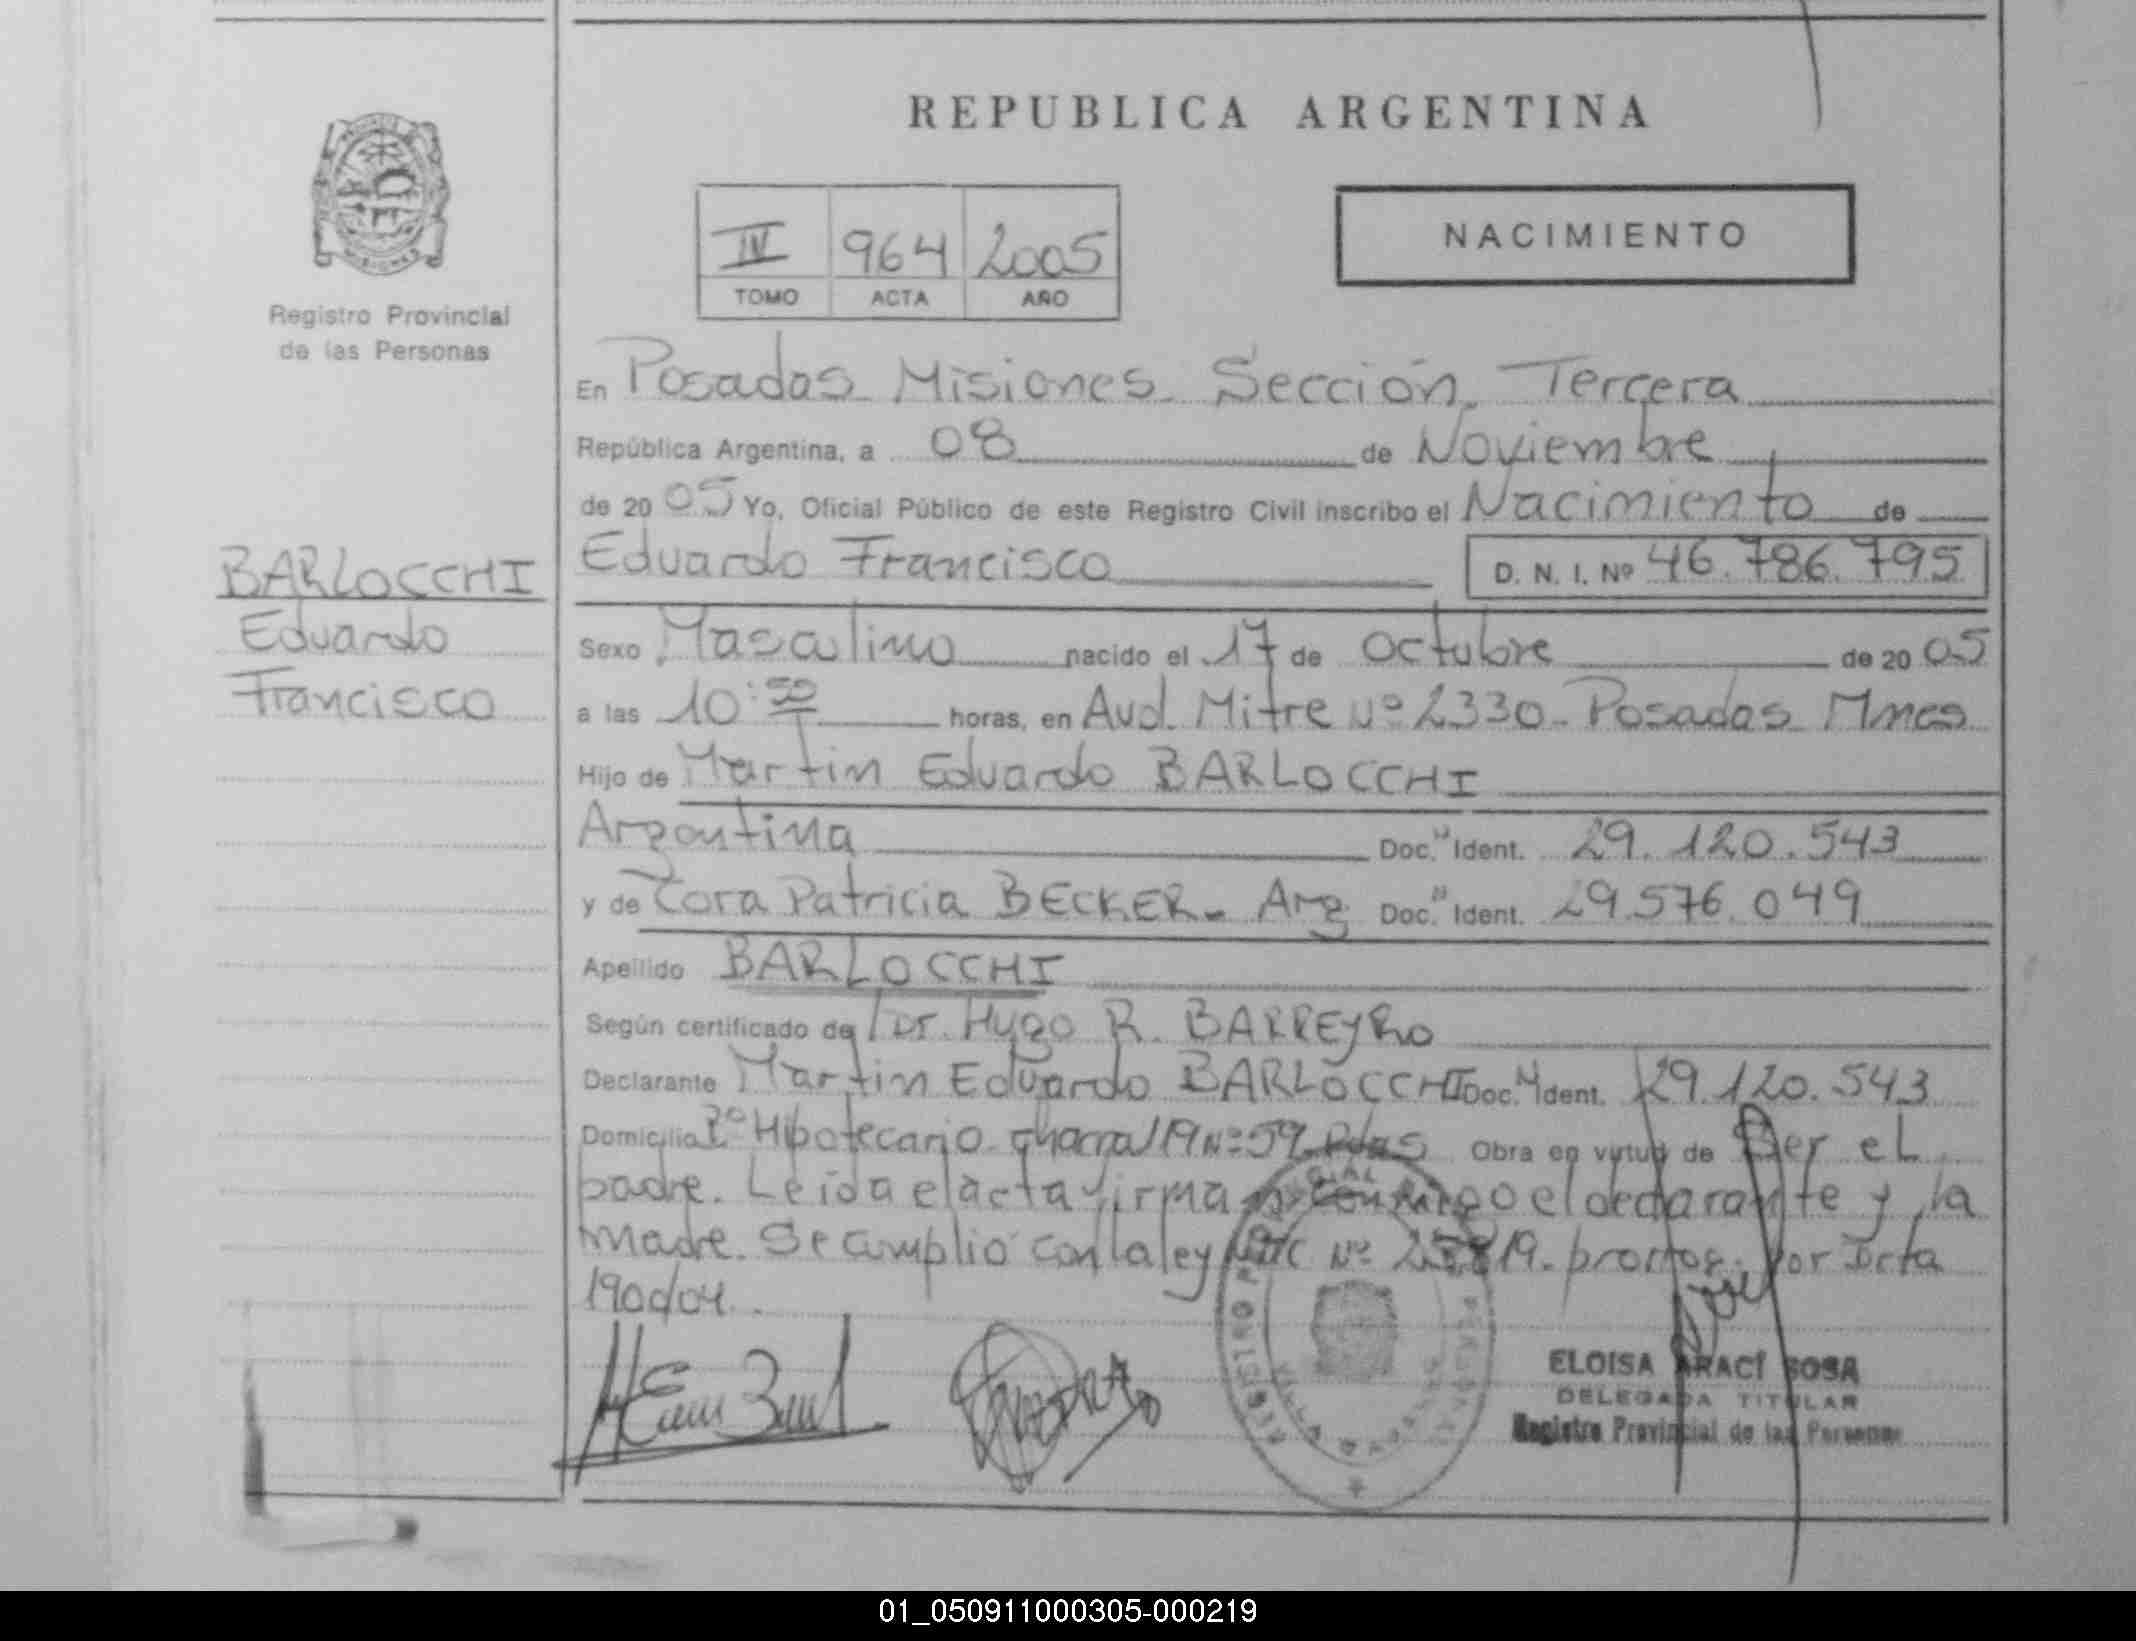 REPUBLICA ARGENTINA
NACIMIENTO
IV 964 2005
TOMO ACTA AÑO
MISIONES
Registro Provincial
de las Personas
BARLOCCHI
Eduardo
Francisco
En Posadas Misiones Sección Tercera
República Argentina, a 08 de Noviembre
de 20 05 Yo, Oficial Público de este Registro Civil inscribo el Nacimiento de
Eduardo Francisco D. N. I. Nº 46.786.795
Sexo Masculino nacido el 17 de Octubre de 20 05
a las 10:50 horas, en Avd. Mitre Nº 2330 - Posadas Mnes
Hijo de Martin Eduardo BARLOCCHI
Argentina Doc. N Ident. 29.120.543
y de Patricia BECKER - Arg Doc. N Ident. 29.576.049
Apellido BARLOCCHI
Según certificado de Dr. Hugo R. BARREYRO
Declarante Martin Eduardo BARLOCCHI Doc. N Ident. 29.120.543
Domicilio Hipotecario chacra 19 Nº 59 Pdas Obra en vutud de Ser el
padre. Leida el acta firman conmigo el declarante y la
madre. Se cumplió con la ley Nº 25.819. por Dcta
1900/04.
ELOISA ARACÍ SOSA
DELEGADA TITULAR
Registro Provincial de las Personas
01_050911000305-000219